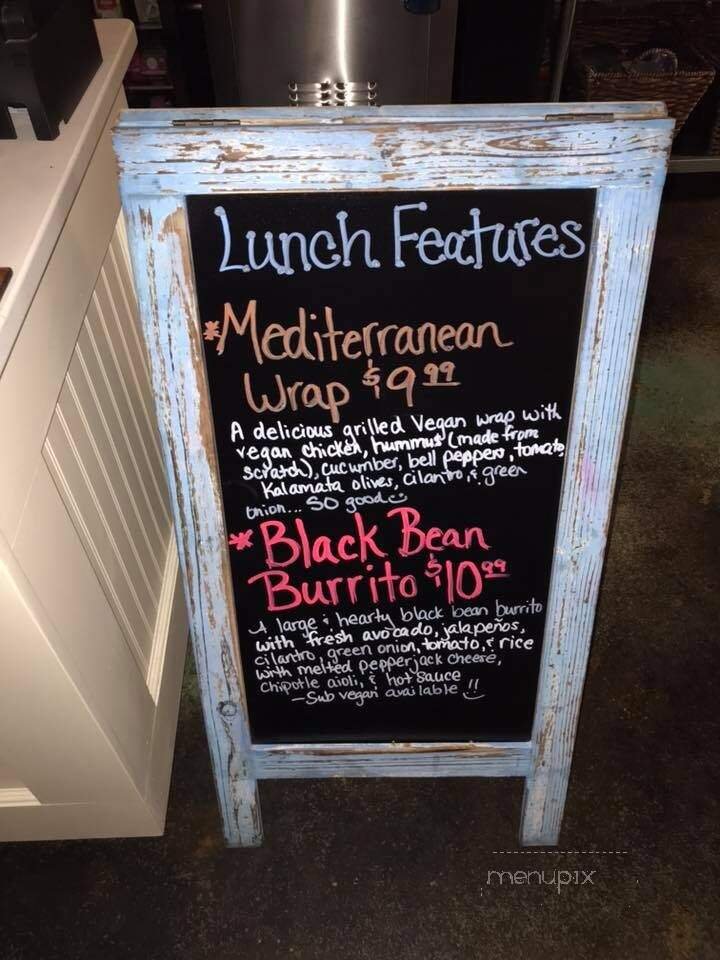 Lunch Features
*Mediterranean
Wrap $9.99
A delicious grilled Vegan wrap with
vegan chicken, hummus (made from
scratch), cucumber, bell peppers, tomato,
Kalamata olives, cilantro, & green
onion... SO good
*Black Bean
Burrito $10.99
A large & hearty black bean burrito
with fresh avocado, jalapeños,
cilantro, green onion, tomato, & rice
with melted pepperjack cheese,
Chipotle aioli, & hot sauce
-Sub vegan available!!
menupix